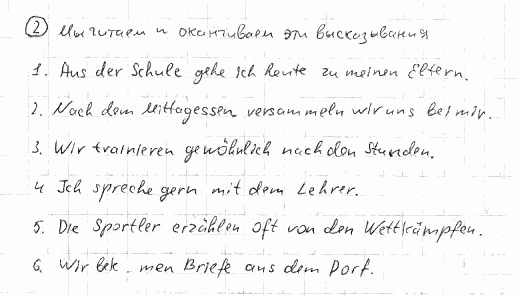 ② Мы читаем и оканчиваем эти высказывания
1. Aus der Schule gehe ich heute zu meinen Eltern.
2. Nach dem Mittagessen versammeln wir uns bei mir.
3. Wir trainieren gewöhnlich nach den Stunden.
4 Ich spreche gern mit dem Lehrer.
5. Die Sportler erzählen oft von den Wettkämpfen.
6. Wir bek. men Briefe aus dem Dorf.